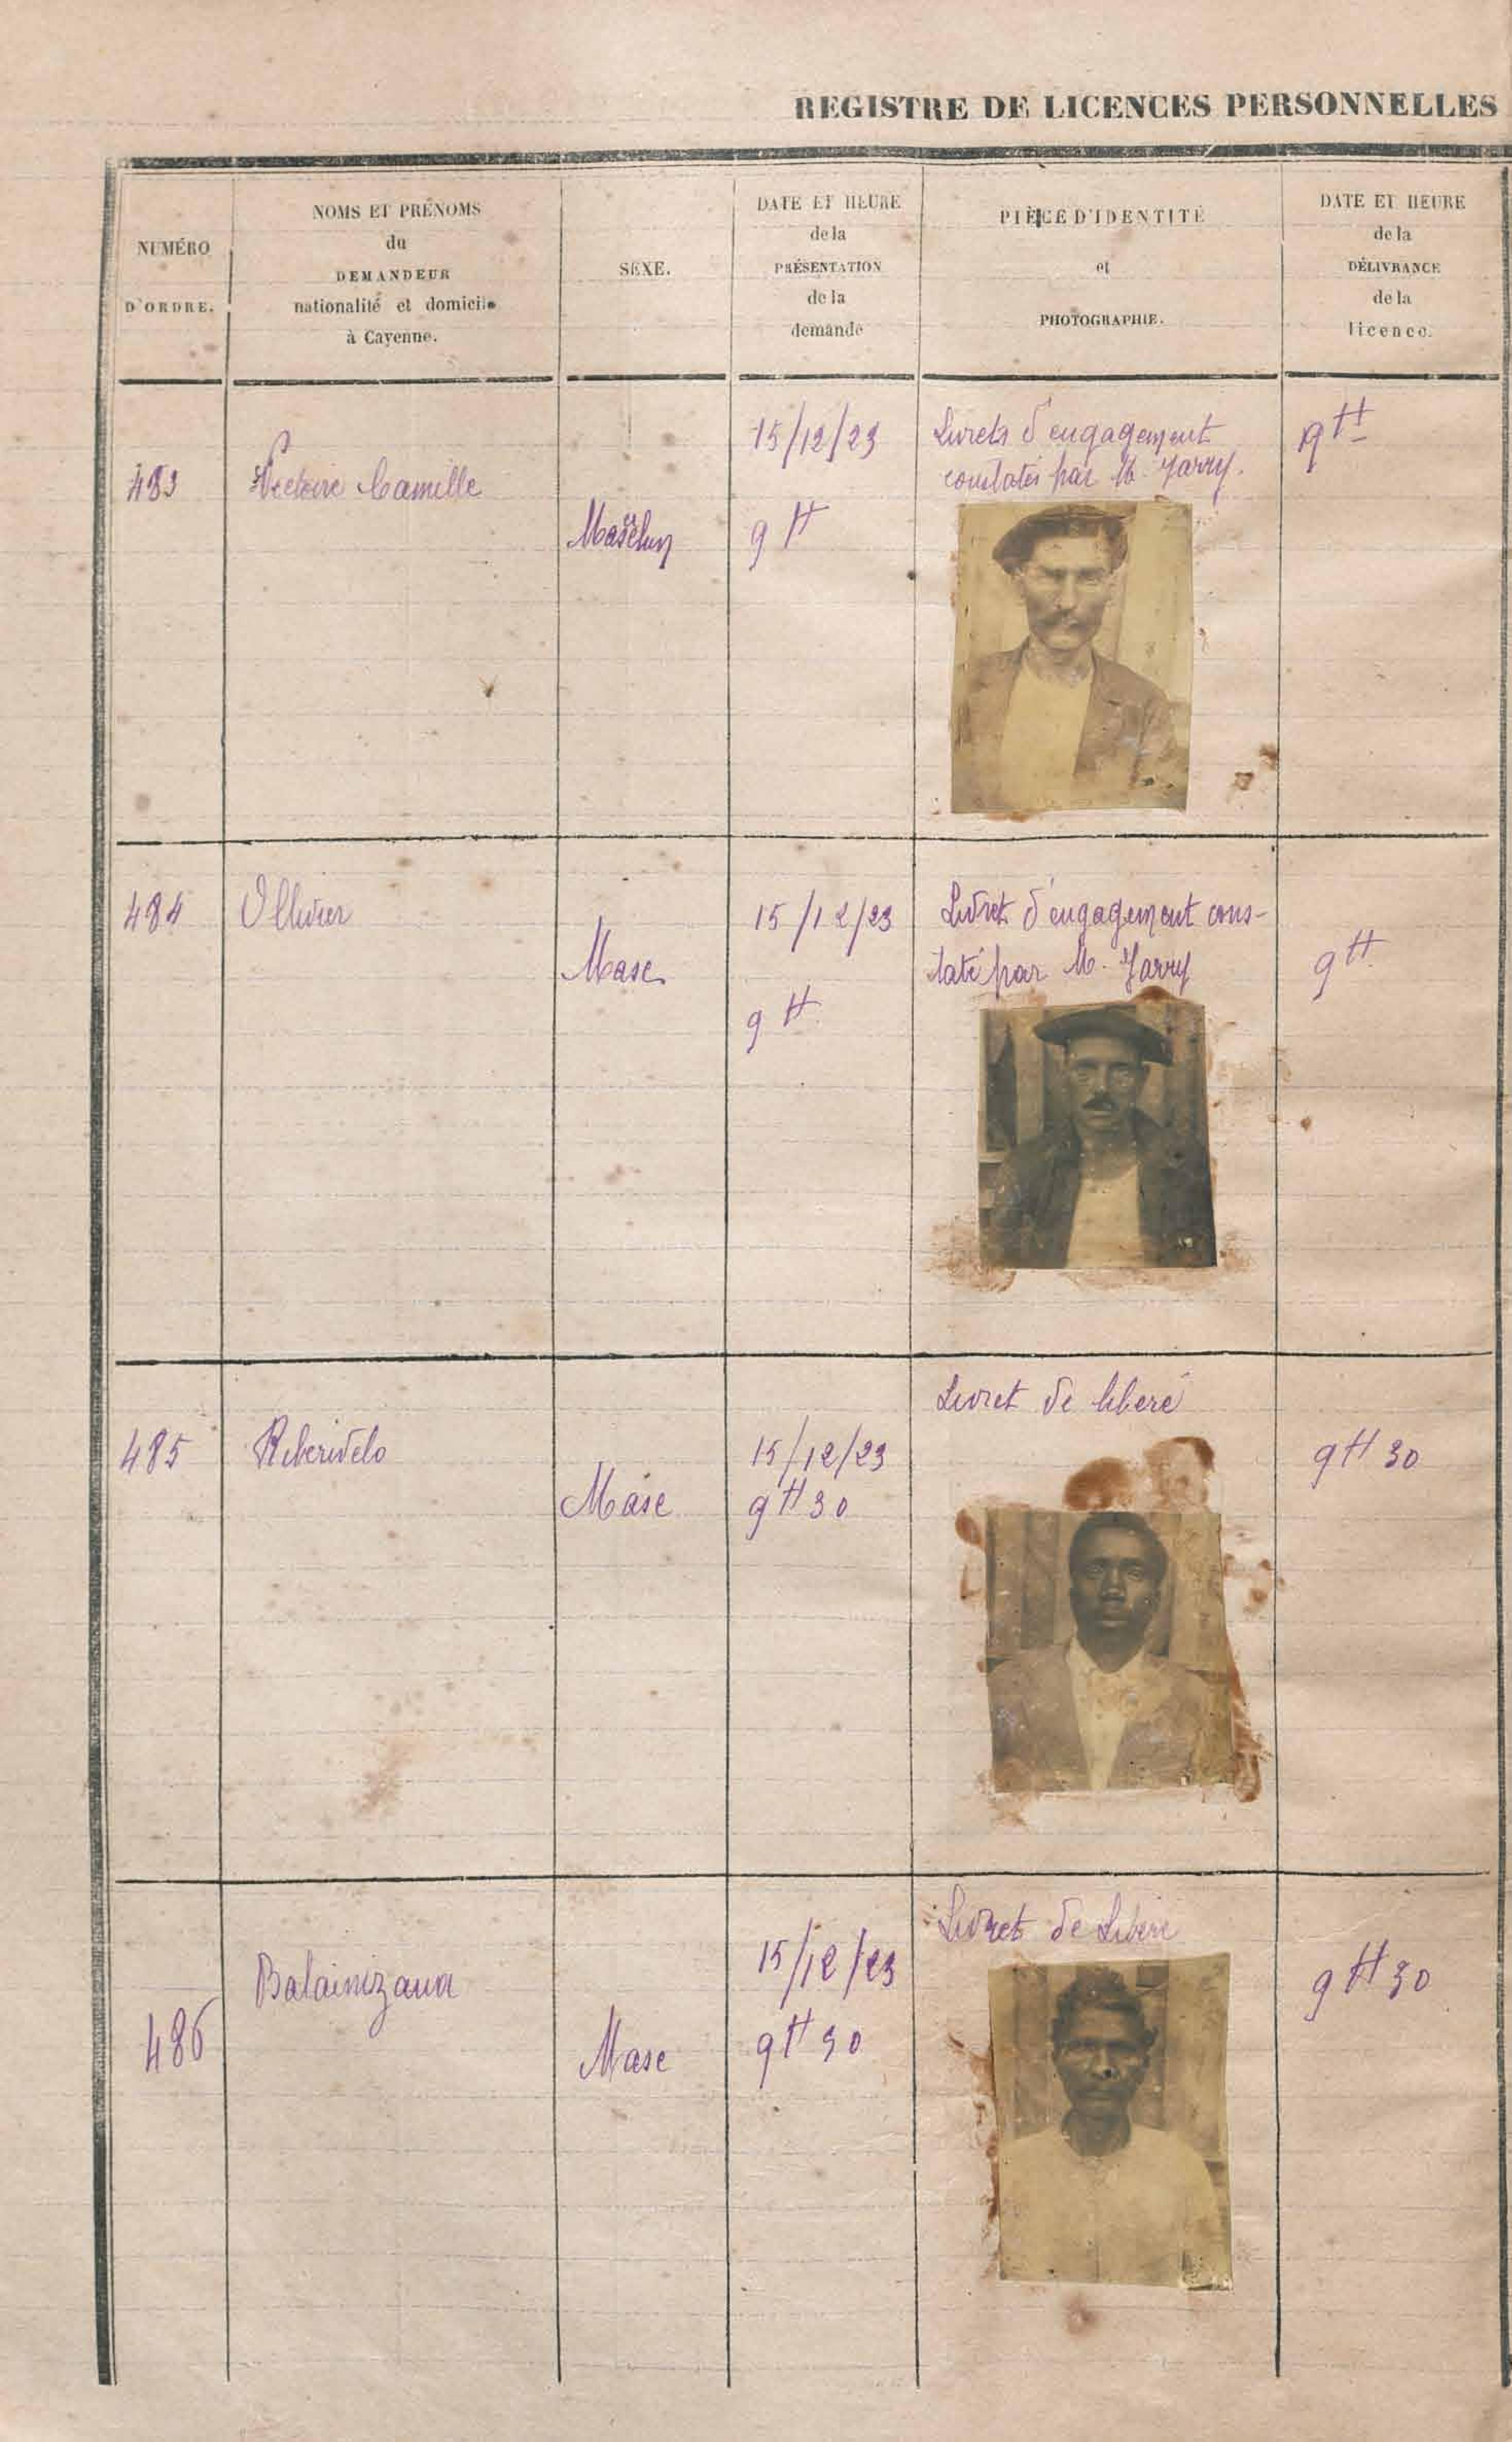 REGISTRE DE LICENCES PERSONNELLES
NUMÉRO
D'ORDRE.
NOMS ET PRÉNOMS
du
DEMANDEUR
nationalité et domicile
à Cayenne.
SEXE.
DATE ET HEURE
de la
PRÉSENTATION
de la
demande
PIÈCE D'IDENTITÉ
et
PHOTOGRAPHIE.
DATE ET HEURE
de la
DÉLIVRANCE
de la
licence.
483
Camille
15/12/23
9 H
Livret d'engagement
constatés par M. Jarry.
9 H
484
Ollivier
Masc
15/12/23
9 H
Livret d'engagement cons-
taté par M. Jarry
9 H
485
Masc
15/12/23
9 H 30
Livret de libéré
9 H 30
486
Masc
15/12/23
9 H 30
Livret de Libéré
9 H 30